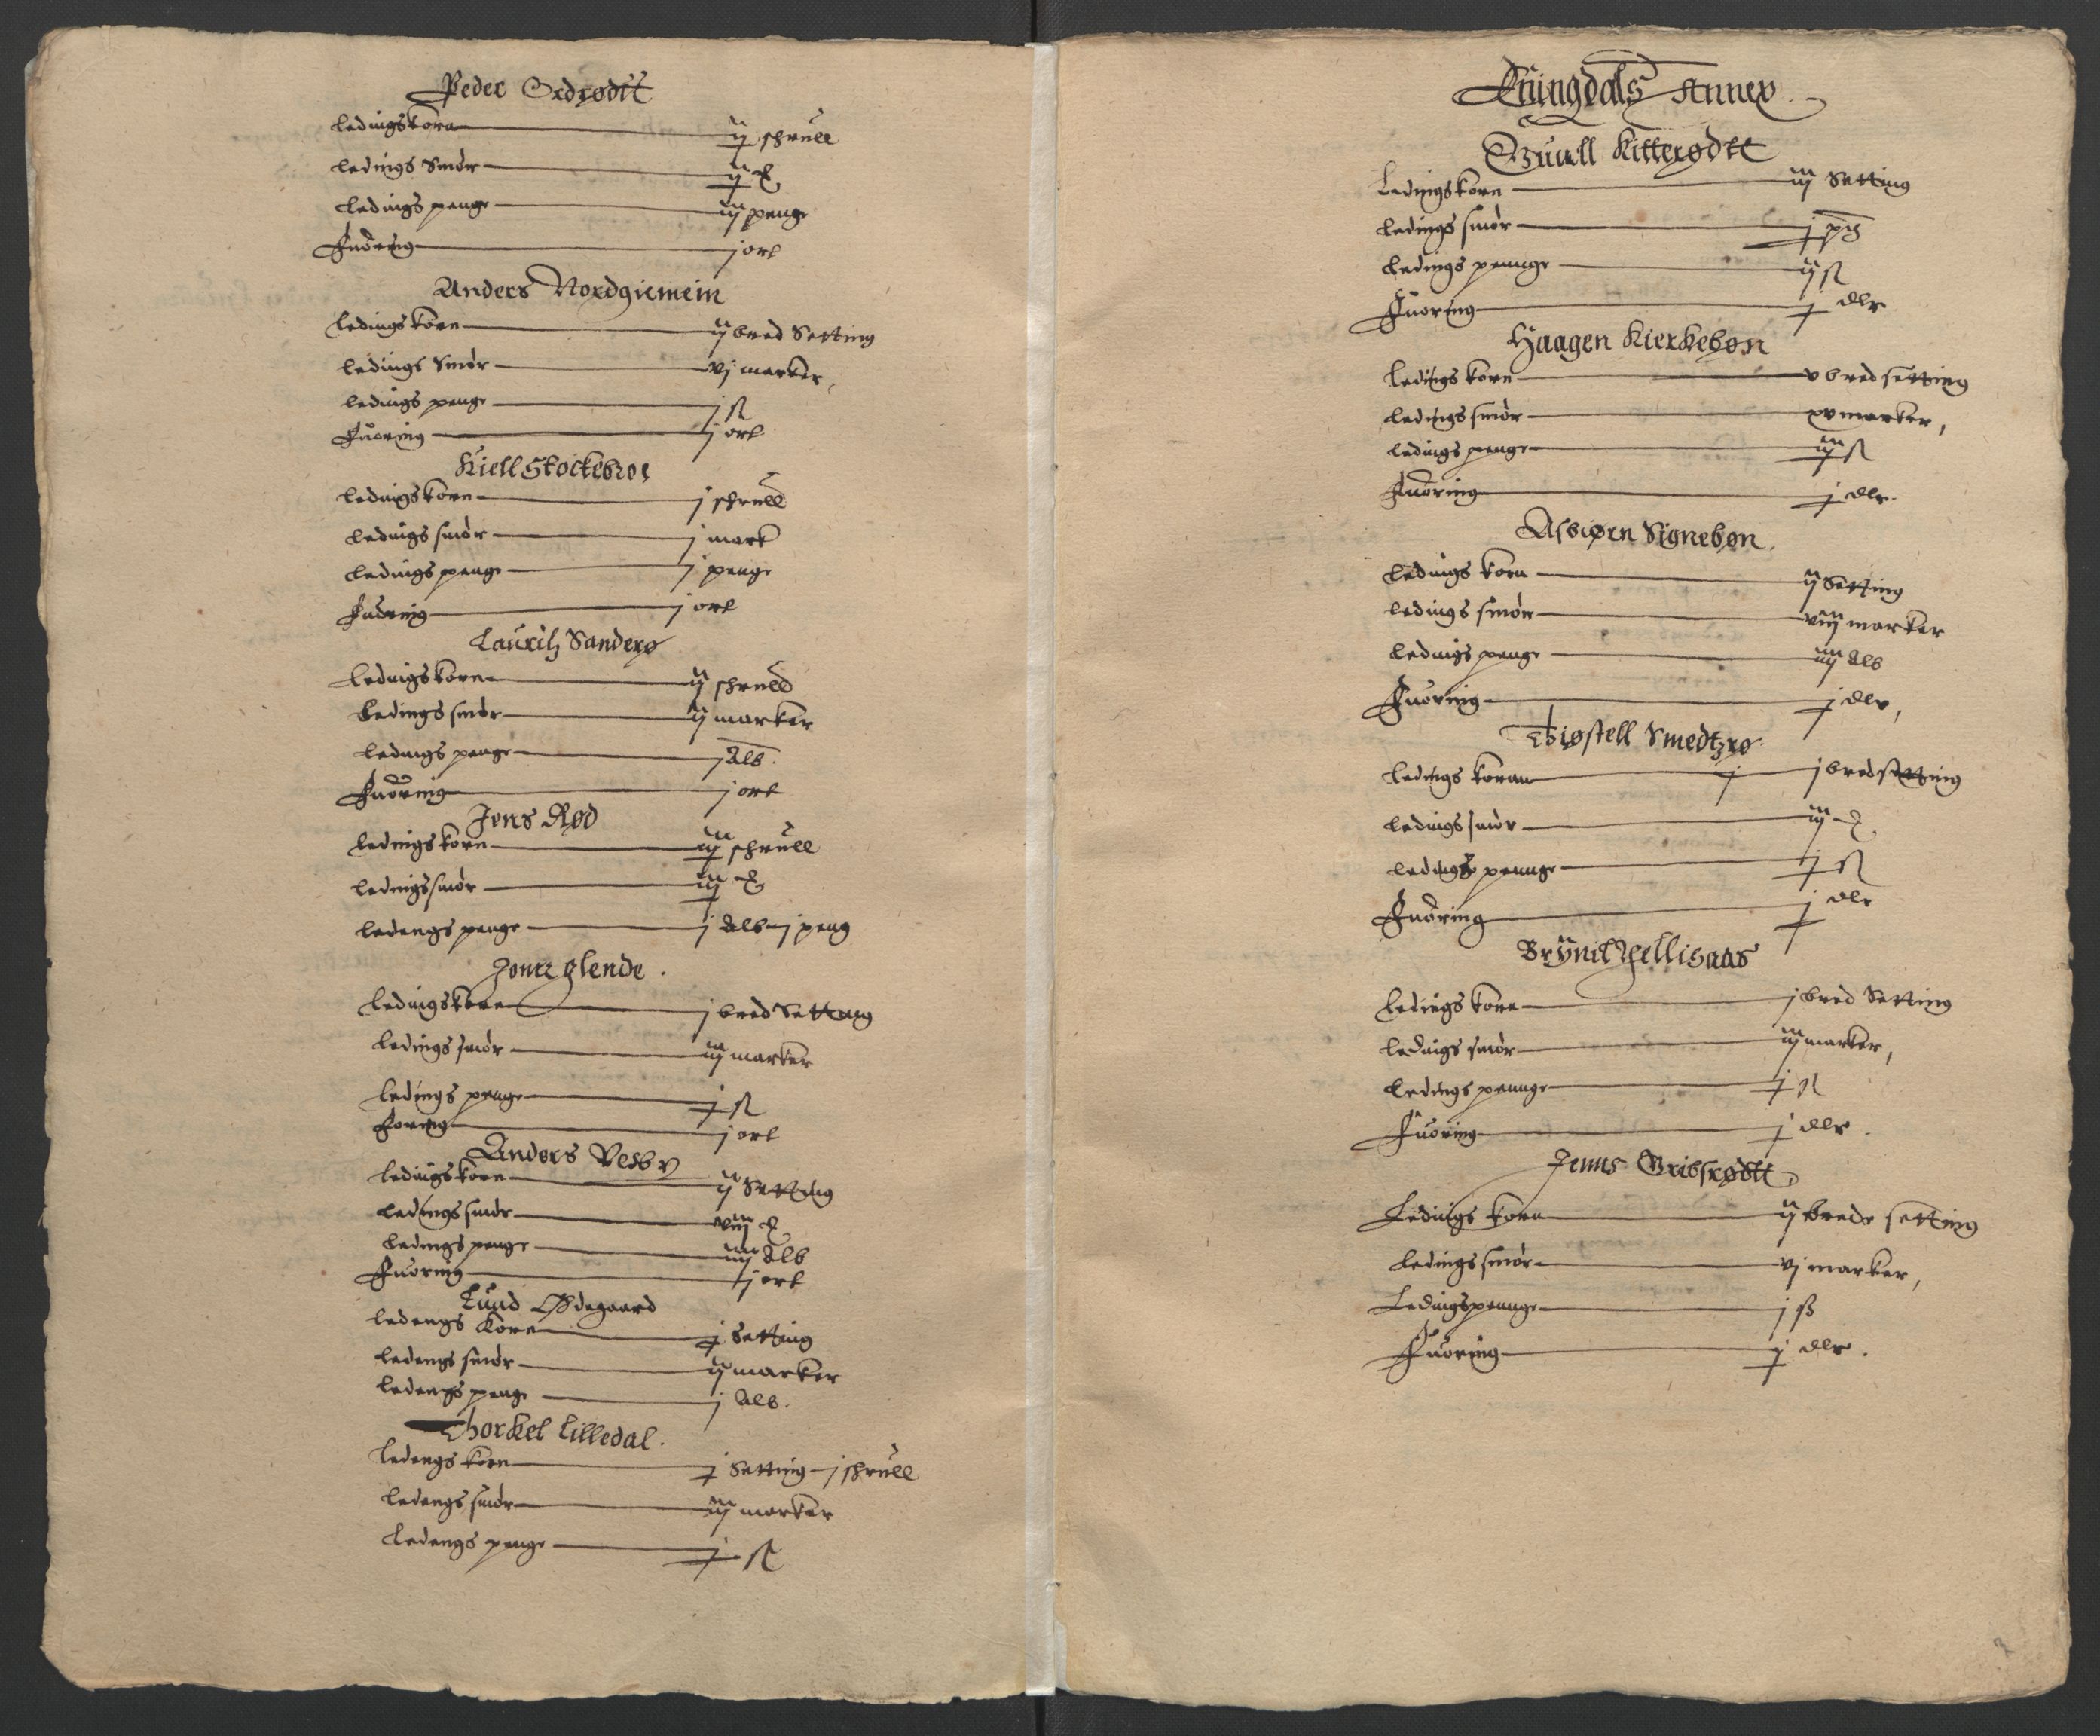 Peder Ordrødtt
ledingskorn ijj schrull
ledings Smør ijj
ledings penge iij penge
Fuoring j ort
Anders Nordgiemein
ledings korn ij bred Setting
ledings Smør vj marker,
ledings penge j ß
Fuoring j ort
Kiell Stockebroe
ledingskorn j schrull
ledings smør j mark
ledings penge j penge
Fuoring j ort
Lauritz Sanderø
ledingskorn ij schrull
Ledings smør ij marker
ledings penge j Alb.
Fuoring j ort
Jens Rød
ledingskorn schrull
ledings smør
ledengs penge j Alb j peng
Jonn Glende.
ledingskorn j bred Setting
ledings smør iij marker
ledings penge ß
Foring j ort
Anders Vesby
ledingskorn ij Setting
ledings smør viij
ledings penge iiij Alb
Fuoring j ort
Lund Ødegaard
ledengs Korn Setting
ledengs smør ij marker
ledengs penge j Alb.
Thorkel Lilledal.
ledengs korn Setting j schrull
ledengs smør iij marker
Ledengs penge ß
Annex
Gunill Kitterødtt
Ledingskorn iij Setting
ledings smør
ledings pennge ij ß
Fuoring dlr
Haagen Kierkebøn
ledings korn v bred setting
ledings smør xv marker,
ledings penge ß
Fuoring dlr.
Asbiørn Signebøn.
ledings korn ij Setting
ledings smør viij marker
ledings penge iiij Alb
Fuoring dlr,
Thiøstell Smedtzrø
ledings koran j bred setting
ledings smør iij
ledings pennge ß
Fuoring dlr
Brÿnild Hellisaas
ledings korn j bred Setting
ledings smør iij marker,
ledings pennge ß
Fuoring dlr.
Jenns Gribsrødtt
Ledings korn ij brede setting
ledings smør vj marker,
Ledings pennge j ß
Fuoring dlr.